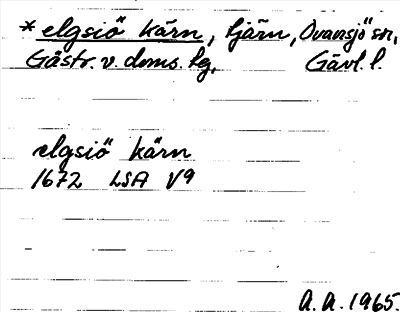 *elgsiö kärn, tjärn, Ovansjö sn,
Gästr. v. doms. lg, Gävl. l.
elgsiö kärn
1672 LSA V9
A. A. 1965.